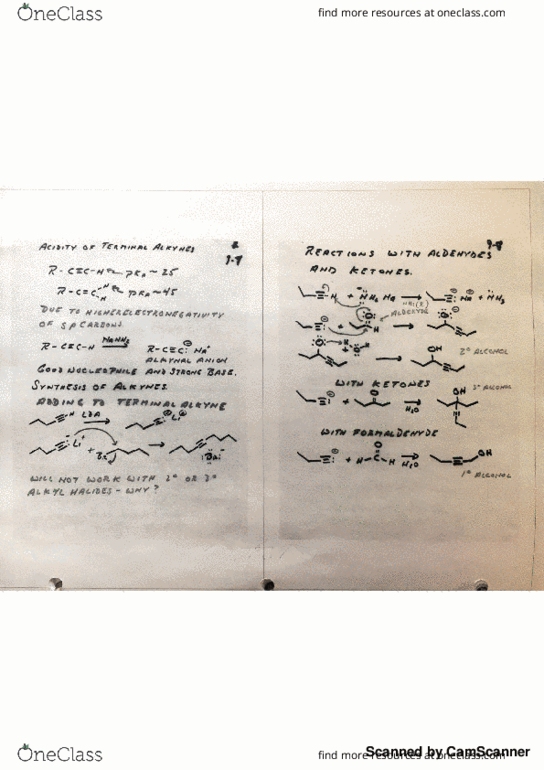 OneClass
find more resources at oneclass.com
ACIDITY OF TERMINAL ALKYNES
9-8
R-C≡C-H pKa~25
pKa~45
DUE TO HIGHER ELECTRONEGATIVITY
OF SP CARBONS
R-C≡C-H NaNH2 R-C≡C: Na+
ALKYNAL ANION
GOOD NUCLEOPHILE AND STRONG BASE.
SYNTHESIS OF ALKYNES
ADDING TO TERMINAL ALKYNE
H LDA Li
Li+ + Br :Br:-
WILL NOT WORK WITH 2° OR 3°
ALKYL HALIDES - WHY?
9-8
REACTIONS WITH ALDEHYDES
AND KETONES.
H + NH2 Na + NH3
ALDEHYDE
2° ALCOHOL
WITH KETONES
OH
H2O
WITH FORMALDEHYDE
+ H-C-H H2O OH
1° ALCOHOL
OneClass
find more resources at oneclass.com
Scanned by CamScanner